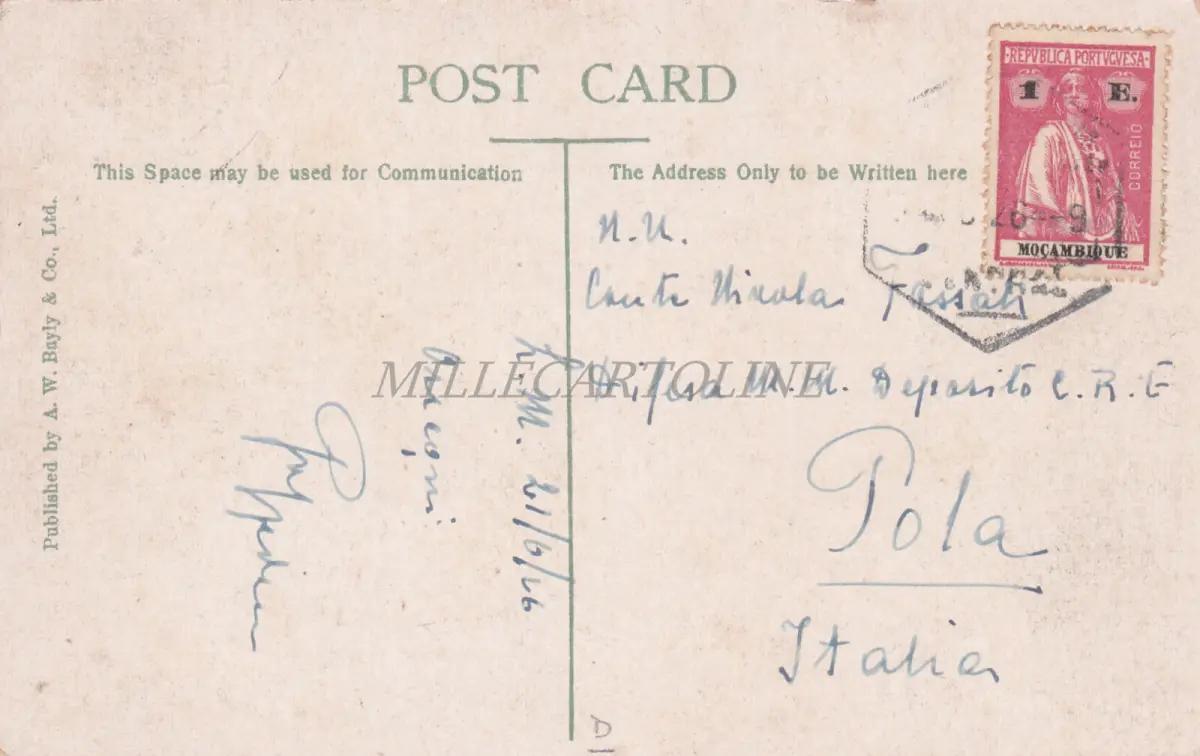 POST CARD
This Space may be used for Communication
The Address Only to be Written here
Published by A. W. Bayly & Co., Ltd.
REPVBLICA PORTVGVESA
1 E.
CORREIO
MOÇAMBIQUE
26 - 9
N. U.
Conte Nicola Fassati
Difesa M. M. Deposito C. R. E
Pola
Italia
L. M. 21/6/26
MILLECARTOLINE
D